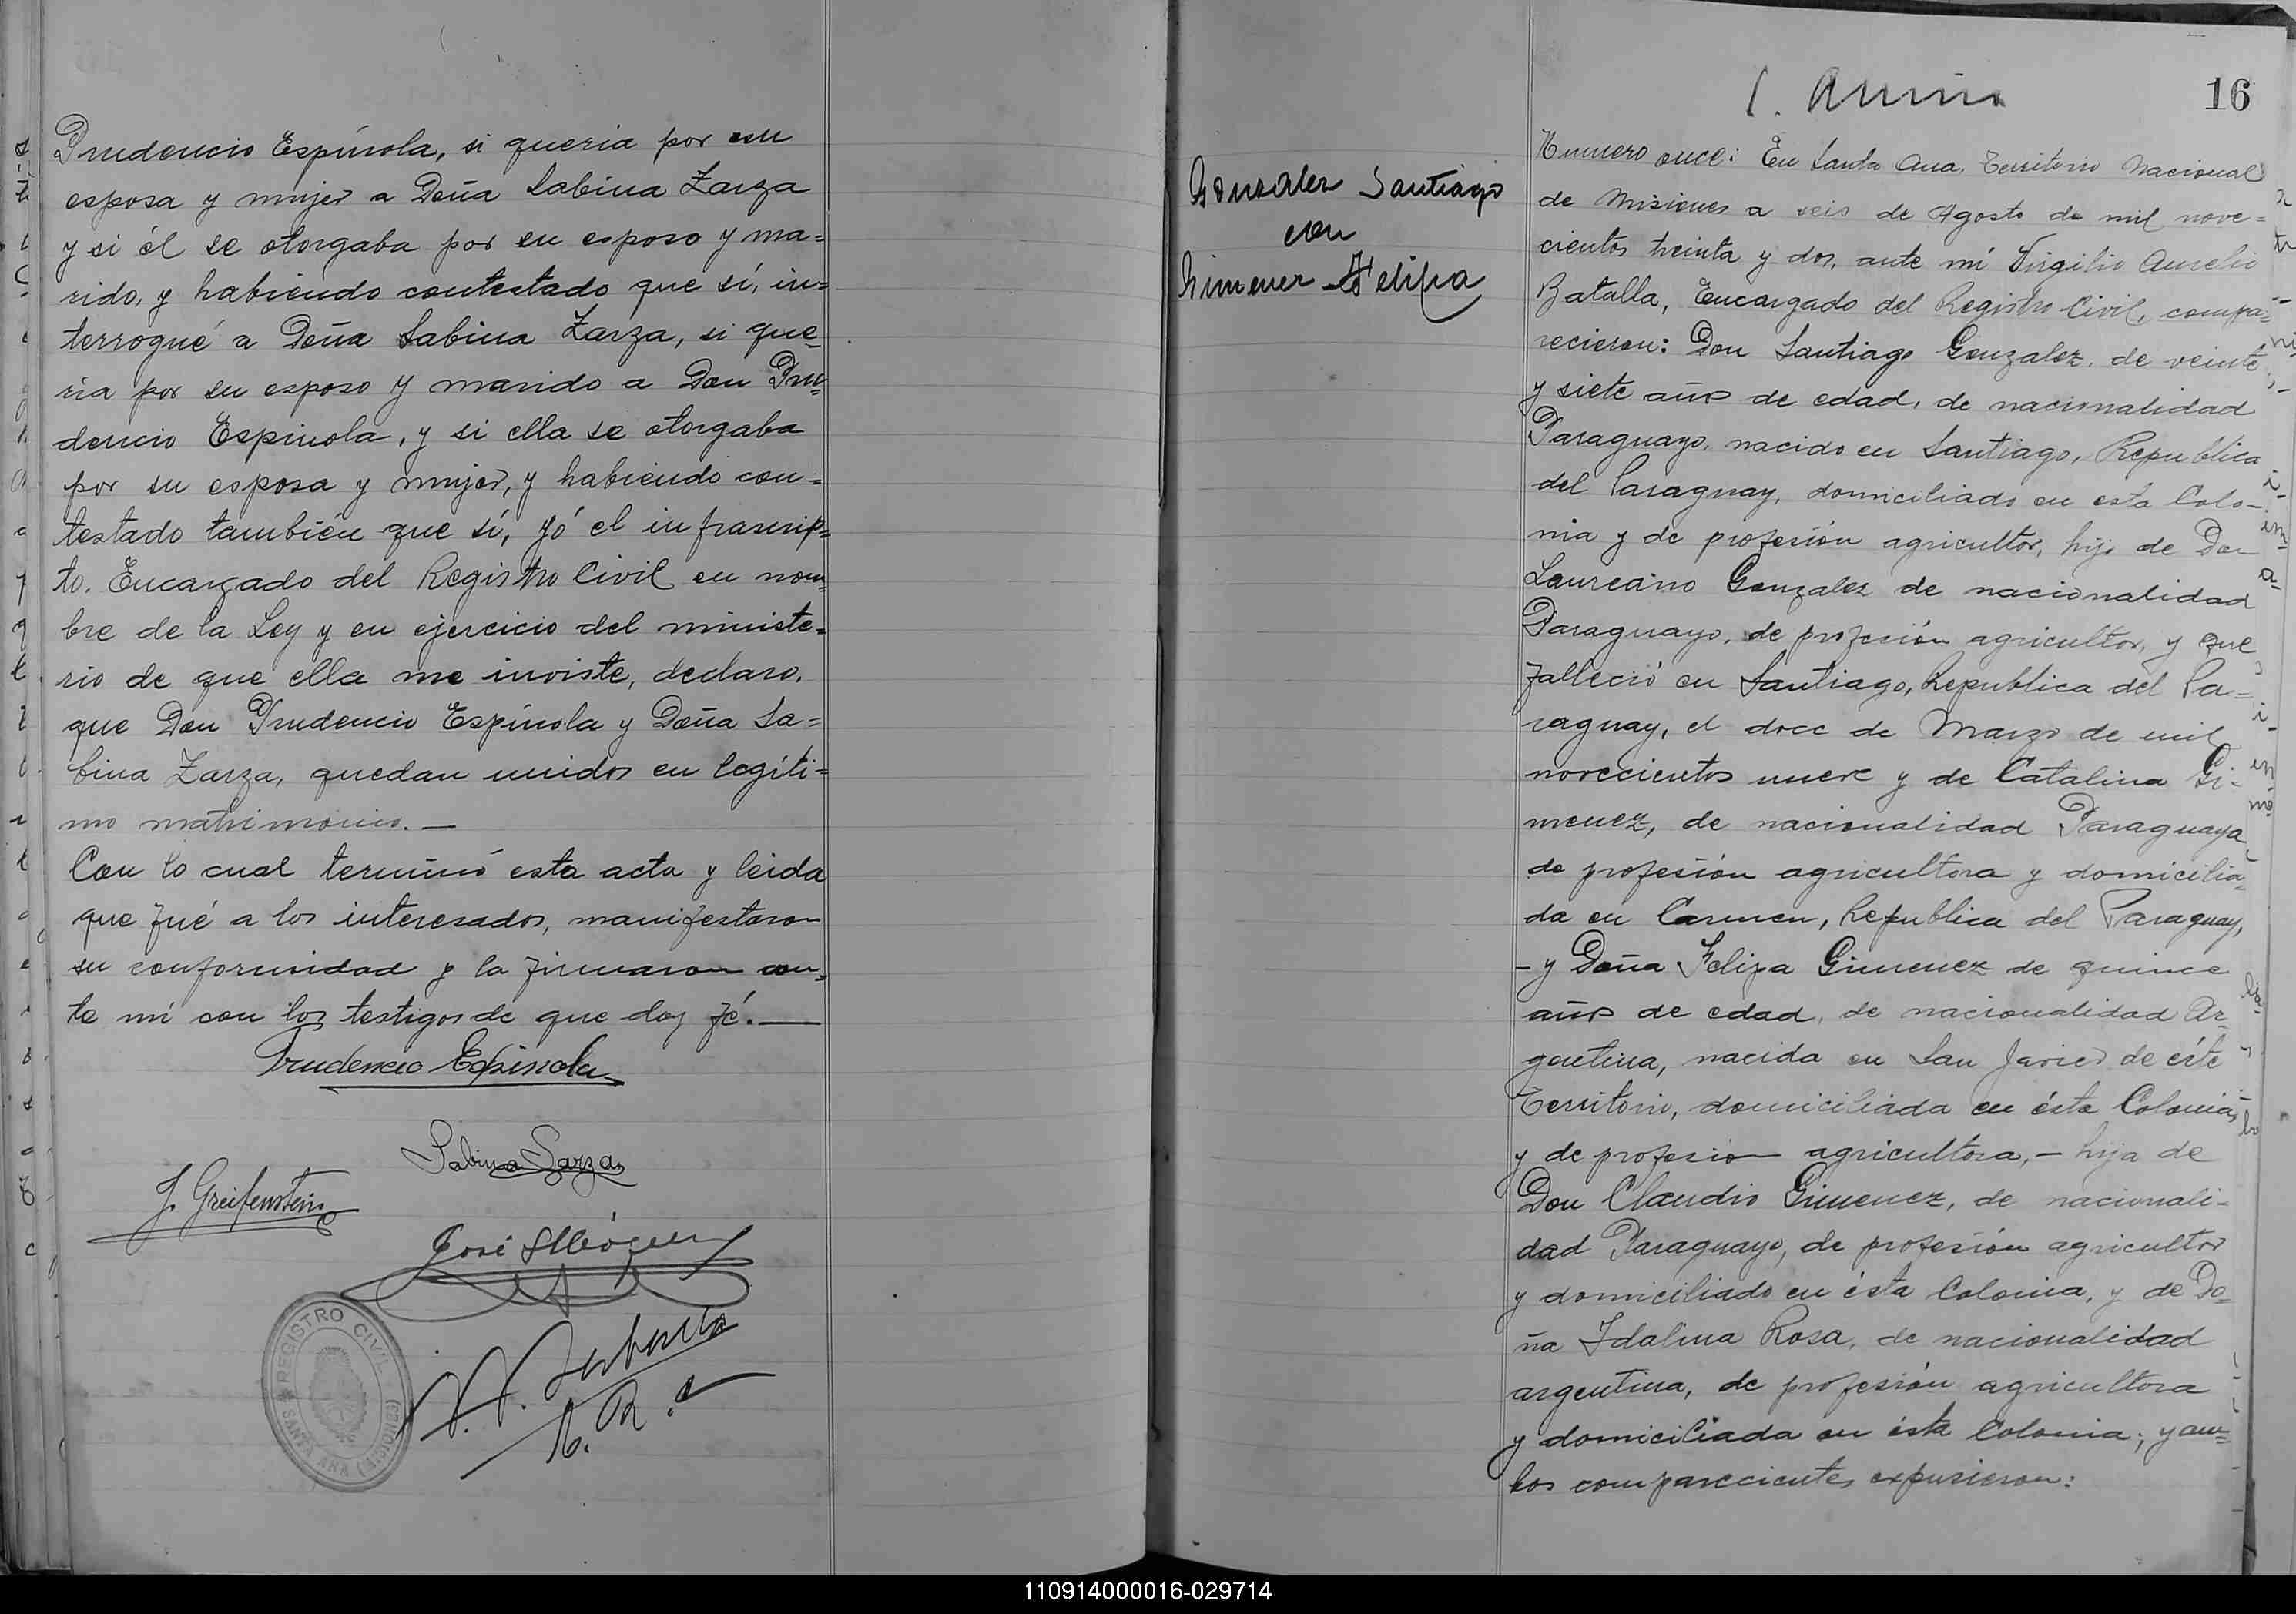 Prudencio Espínola, si queria por su
esposa y mujer a Doña Sabina Zarza
y si él se otorgaba por su esposo y ma=
rido, y habiendo contestado que sí, in=
terrogué a Doña Sabina Zarza, si que=
ria por su esposo y marido a Don Pru=
dencio Espinola, y si ella se otorgaba
por su esposa y mujer, y habiendo con=
testado también que sí, yó el infrascrip=
to. Encargado del Registro Civil en nom=
bre de la Ley y en ejercicio del ministe=
rio de que ella me inviste, declaro,
que Don Prudencio Espínola y Doña Sa=
bina Zarza, quedan unidos en legíti=
mo matrimonio.—
Con lo cual terminó esta acta y leida
que fué a los interesados, manifestaron
su conformidad y la firmaron an=
te mí con los testigos de que doy fé.—
Prudencio Espinola
Sabina Sarza
J. Greifenstein
José
REGISTRO CIVIL
SANTA ANA (MISIONES)
16
Gonzalez Santiago
con
Gimenez Felipa
Numero once: En Santa Ana, Territorio Nacional
de Misiones a seis de Agosto de mil nove=
cientos treinta y dos, ante mí Virgilio Aurelio
Batalla, Encargado del Registro Civil, compa=
recieron: Don Santiago Gonzalez, de veinte
y siete años de edad, de nacionalidad
Paraguayo, nacido en Santiago, Republica
del Paraguay, domiciliado en esta Colo-
nia y de profesión agricultor, hijo de Don
Laureano Gonzalez de nacionalidad
Paraguayo, de profesión agricultor, y que
falleció en Santiago, Republica del Pa=
raguay, el doce de Marzo de mil
novecientos nueve y de Catalina Gi-
menez, de nacionalidad Paraguaya
de profesión agricultora y domicilia=
da en Carmen, Republica del Paraguay,
- y Doña Felipa Gimenez de quince
años de edad, de nacionalidad Ar=
gentina, nacida en San Javier de éste
Territorio, domiciliada en ésta Colonia,
y de profesion agricultora,- hija de
Don Claudio Gimenez, de nacionali-
dad Paraguayo, de profesión agricultor
y domiciliado en ésta Colonia, y de Do=
ña Idalina Rosa, de nacionalidad
argentina, de profesión agricultora
y domiciliada en ésta Colonia; y am=
bos comparecientes expusieron:
110914000016-029714